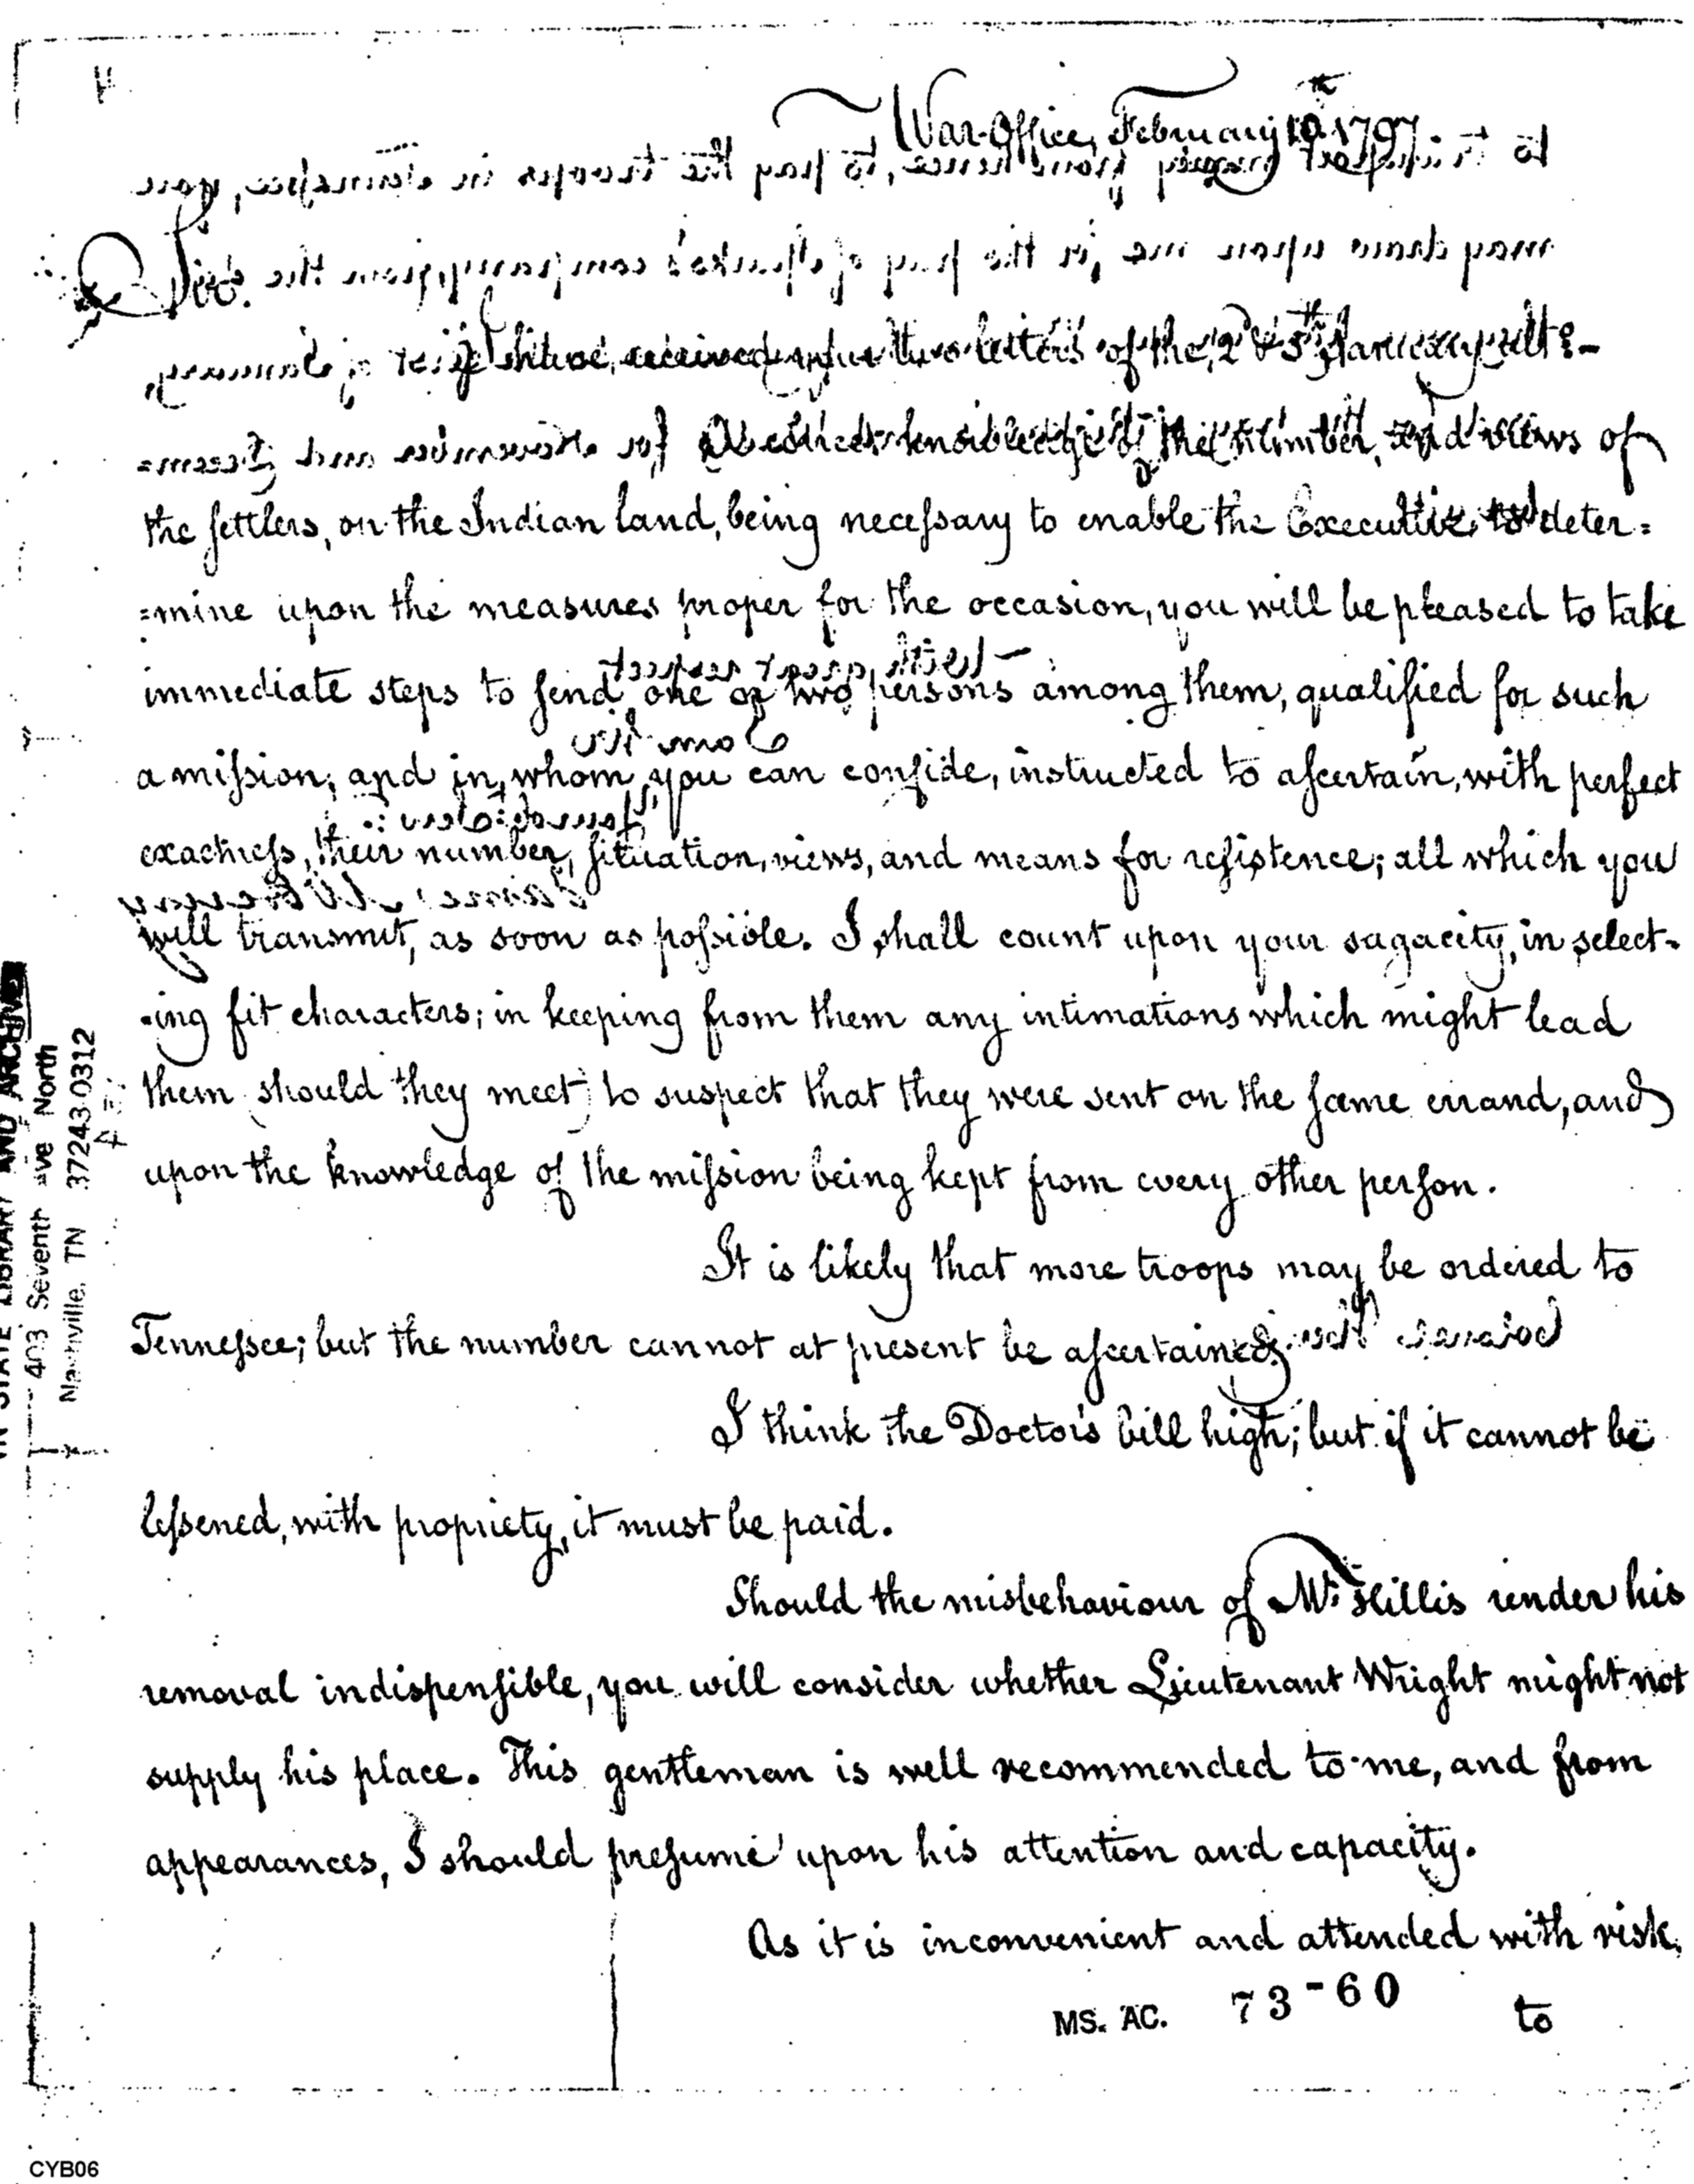 War-Office, February 10th 1797.
Sir.
I have received your two letters of the 2d & 5th January ult:-
A correct knowledge of the number, and views of
the settlers, on the Indian land, being necessary to enable the Executive to deter=
=mine upon the measures proper for the occasion, you will be pleased to take
immediate steps to send one or two persons among them, qualified for such
a mission; and in whom you can confide, instructed to ascertain, with perfect
exactness, their number, situation, views, and means for resistence; all which you
will transmit, as soon as possible. I shall count upon your sagacity, in select-
-ing fit characters; in keeping from them any intimations which might lead
them should they meet, to suspect that they were sent on the same errand, and
upon the knowledge of the mission being kept from every other person.
It is likely that more troops may be ordered to
Tennessee; but the number cannot at present be ascertained.
I think the Doctor's bill high; but if it cannot be
lessened, with propriety, it must be paid.
Should the misbehaviour of Mr. Hillis render his
removal indispensible, you will consider whether Lieutenant Wright might not
supply his place. This gentleman is well recommended to me, and from
appearances, I should presume upon his attention and capacity.
As it is inconvenient and attended with risk,
to
MS. AC. 73-60
TN STATE LIBRARY AND ARCHIVES
403 Seventh Ave North
Nashville, TN 37243-0312
CYB06